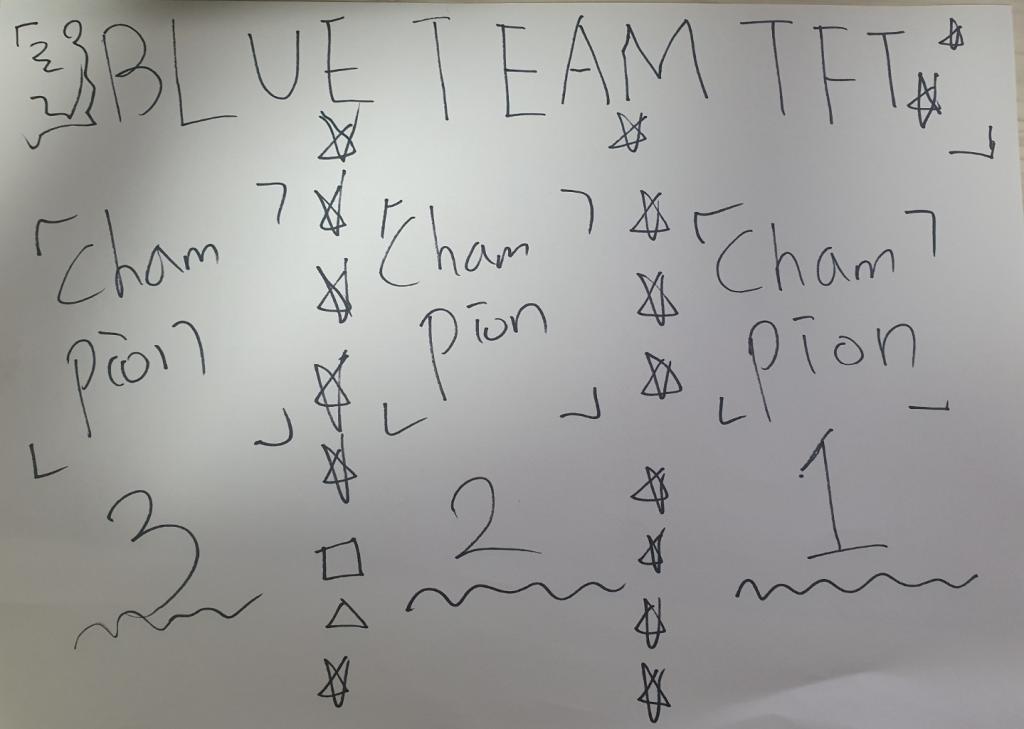 BLUE TEAM TFT
Cham
pion
3
Cham
pion
2
Cham
pion
1